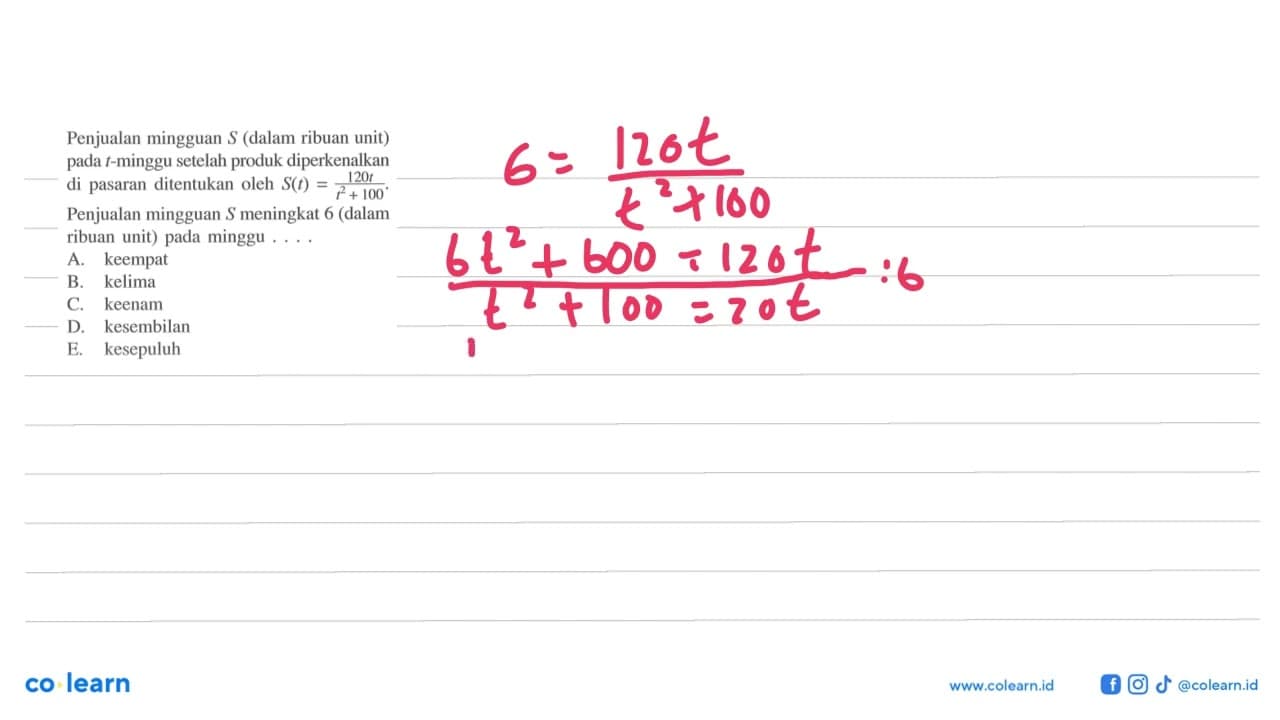 Penjualan mingguan S (dalam ribuan unit)
pada t-minggu setelah produk diperkenalkan
di pasaran ditentukan oleh S(t) = 120t / t² + 100.
Penjualan mingguan S meningkat 6 (dalam
ribuan unit) pada minggu . . . .
A. keempat
B. kelima
C. keenam
D. kesembilan
E. kesepuluh
6 = 120t / t² + 100
6t² + 600 = 120t : 6
t² + 100 = 20t
co learn
www.colearn.id
@colearn.id